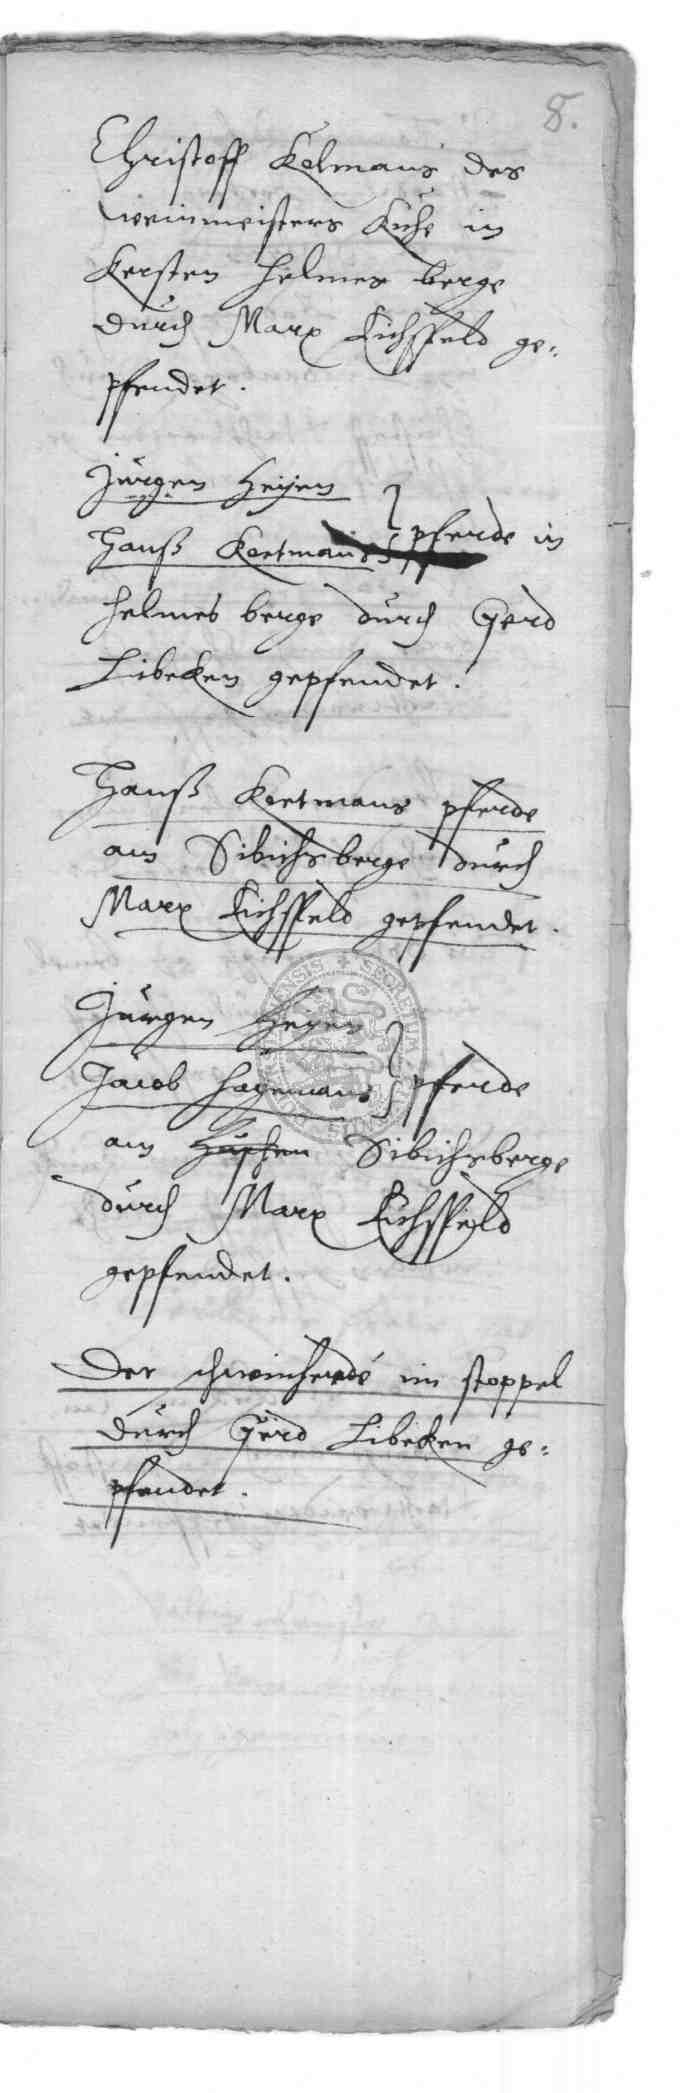 8.
Christoff Kelmans des
weinmeisters Kühe in
Kersten Helmes berge
durch Marx Eichsfeld ge„
pfendet.
Jürgen Heyen
Hanß Koetmans } pferde in
Helmes berge durch Gerd
Libeken gepfendet.
Hanß Koetmans pferde
am Sibichsberge durch
Marx Eichsfeld gepfendet.
Jürgen Heyen
Jacob Hagemans } pferde
am Sibichsberge
durch Marx Eichsfeld
gepfendet.
Der schweinherde im stoppel
durch Gerd Libeken ge„
pfendet.